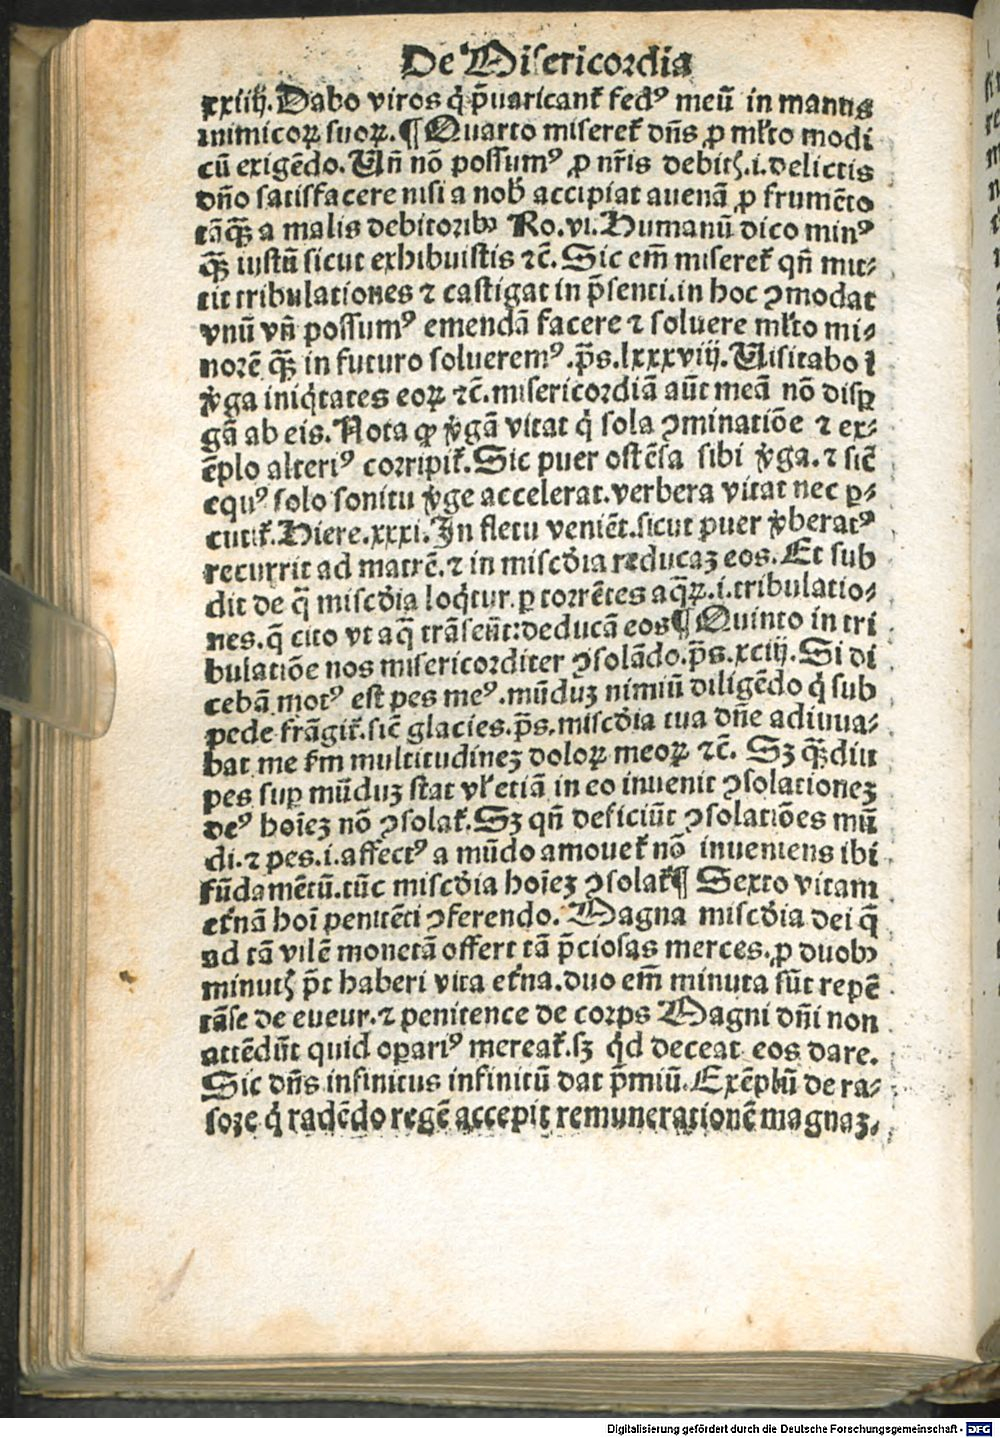 De Misericordia
xxiiij. Dabo viros q̇ p̄uaricant̉ fedꝰ meū in manus
inimicoꝝ suoꝝ. ¶ Quarto miseret̉ dn̄s ꝓ ml̉to modi
cū exigēdo. Un̄ nō possumꝰ ꝓ nr̄is debitꝭ .i. delictis
dn̄o satisfacere nisi a nob̉ accipiat auenā ꝓ frumēto
tāꝙ̄ a malis debitoribꝰ Ro. vi. Humanū dico minꝰ
ꝙ̄ iustū sicut exhibuistis ⁊c̄. Sic em̄ miseret̉ qn̄ mit⸗
tit tribulationes ⁊ castigat in p̄senti. in hoc ꝯmodat
vnū vn̄ possumꝰ emendā facere ⁊ soluere ml̉to mi⸗
norē ꝙ̄ in futuro solueremꝰ. p̄s. lxxxviij. Uisitabo i
v̉ga iniq̇tates eoꝝ ⁊c̄. misericordiā aūt meā nō disꝑ
gā ab eis. Nota ꝙ v̉gā vitat q̇ sola ꝯminatiōe ⁊ ex⸗
ēplo alteriꝰ corripit̉. Sic puer ostēsa sibi v̉ga. ⁊ sic̄
equꝰ solo sonitu v̉ge accelerat. verbera vitat nec ꝑ⸗
cutit̉. Hiere. xxxi. In fletu veniēt. sicut puer v̉beratꝰ
recurrit ad matrē. ⁊ in misc̉dia reducaꝫ eos. Et sub
dit de q̄ misc̉dia loq̇tur. ꝑ torrētes aq̄ꝝ .i. tribulatio⸗
nes. q̄ cito vt aq̄ trāseūt: deducā eos ¶ Quinto in tri
bulatiōe nos misericorditer ꝯsolādo. p̄s. xciij. Si di
cebā motꝰ est pes meꝰ. mūduꝫ nimiū diligēdo q̇ sub
pede frāgit̉. sic̄ glacies. p̄s. misc̉dia tua dn̄e adiuua⸗
bat me s̉m multitudineꝫ doloꝝ meoꝝ ⁊c̄. Sꝫ ꝙ̄diu
pes suꝑ mūduꝫ stat vl̉ etiā in eo inuenit ꝯsolationeꝫ
deꝰ hoīeꝫ nō ꝯsolat̉. Sꝫ qn̄ deficiūt ꝯsolatiōes mū
di. ⁊ pes .i. affectꝰ a mūdo amouet̉ nō inueniens ibi
fūdamētū. tūc misc̉dia hoīeꝫ ꝯsolat̉ ¶ Sexto vitam
et̉nā hoī penitēti ꝯferendo. Magna misc̉dia dei q̄
ad tā vilē monetā offert tā p̄ciosas merces. ꝓ duobꝰ
minutꝭ p̄t haberi vita et̉na. duo em̄ minuta sūt repē
tāse de eueur. ⁊ penitence de corps Magni dn̄i non
attēdūt quid oꝑariꝰ mereat̉. sꝫ q̇d deceat eos dare.
Sic dn̄s infinitus infinitū dat p̄miū. Exēplū de ra⸗
sore q̇ radēdo regē accepit remunerationē magnaꝫ.
Digitalisierung gefördert durch die Deutsche Forschungsgemeinschaft - DFG